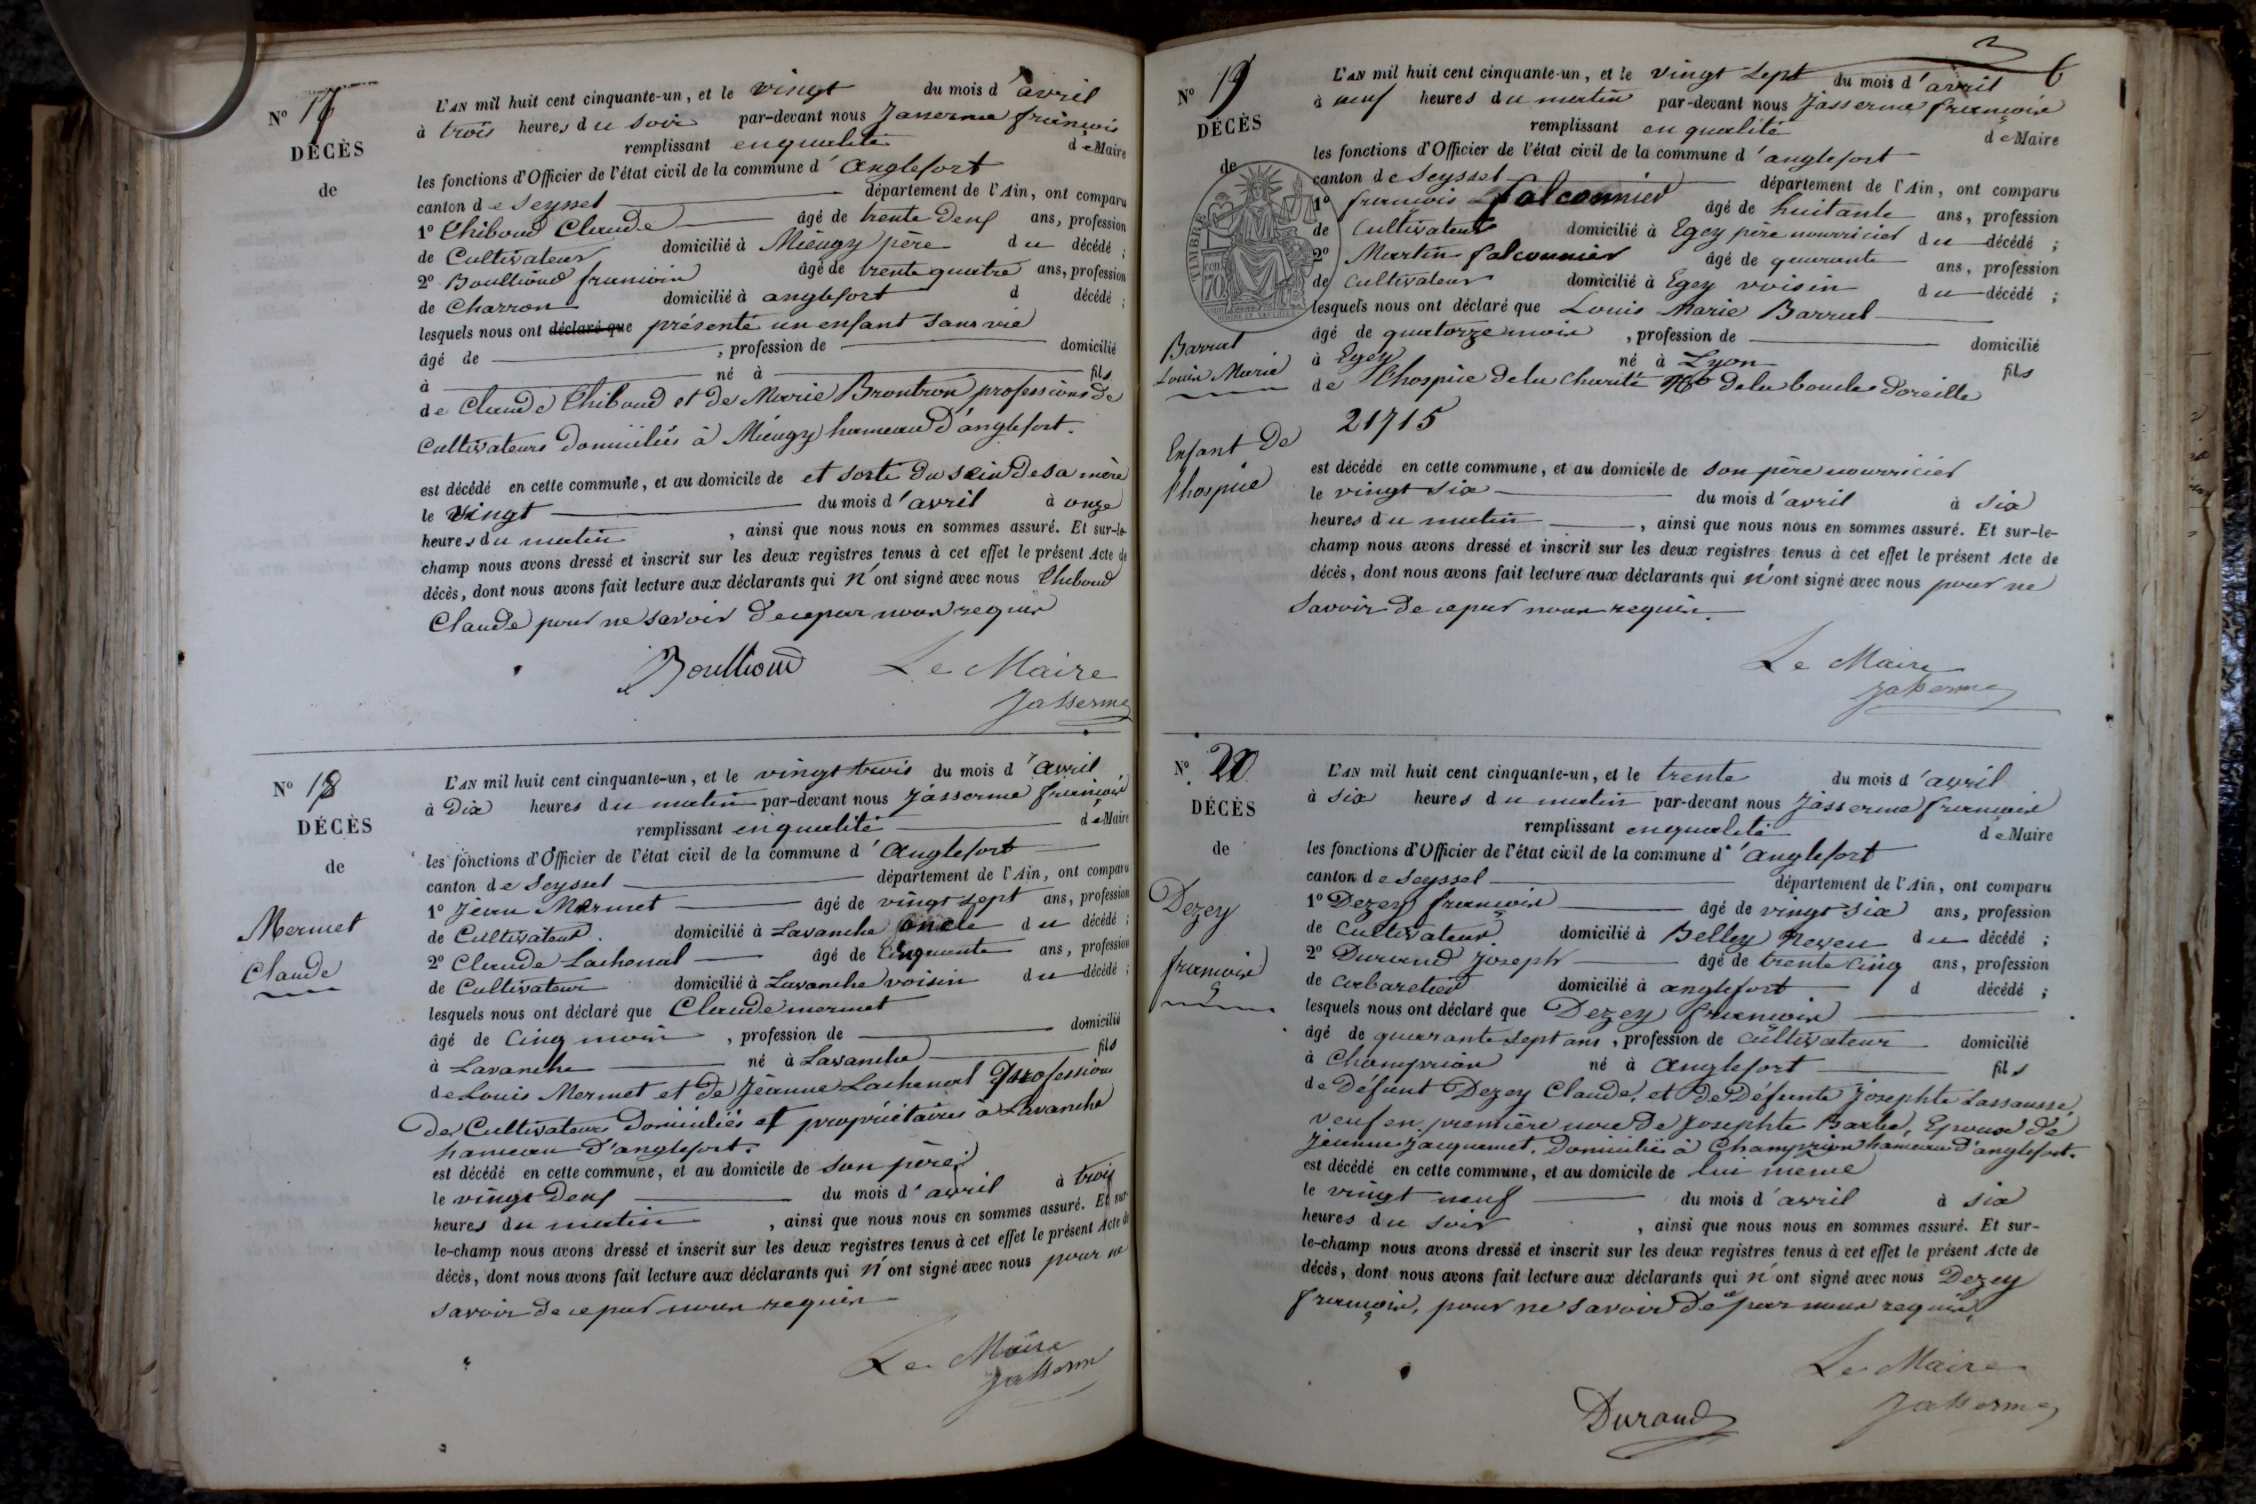 N° 17
DÉCÈS
de
L'AN mil huit cent cinquante-un, et le vingt du mois d'avril
à trois heures du soir par-devant nous Jasserme françois
remplissant en qualité de Maire
les fonctions d'Officier de l'état civil de la commune d'anglefort
canton de Seyssel département de l'Ain, ont comparu
1° Thiboud Claude âgé de trente deux ans, profession
de Cultivateur domicilié à Miéugy père du décédé ;
2° Boullioud françois âgé de trente quatre ans, profession
de Charron domicilié à anglefort d décédé ;
lesquels nous ont déclaré que présenté un enfant sans vie
âgé de , profession de domicilié
à né à fils
de Claude Thiboud et de Marie Brontron professions de
Cultivateurs domiciliés à Miéugy hameau d'anglefort.
est décédé en cette commune, et au domicile de et sorte du sein de sa mère
le vingt du mois d'avril à onze
heures du matin , ainsi que nous nous en sommes assuré. Et sur-le-
champ nous avons dressé et inscrit sur les deux registres tenus à cet effet le présent Acte de
décès, dont nous avons fait lecture aux déclarants qui n'ont signé avec nous Thiboud
Claude pour ne savoir de ce par nous requis
Boullioud Le Maire
Jasserme
N° 18
DÉCÈS
de
Mermet
Claude
L'AN mil huit cent cinquante-un, et le vingt trois du mois d'avril
à Dix heures du matin par-devant nous Jasserme françois
remplissant en qualité de Maire
les fonctions d'Officier de l'état civil de la commune d'anglefort
canton de Seyssel département de l'Ain, ont comparu
1° Jean Mermet âgé de vingt sept ans, profession
de Cultivateur domicilié à Lavanche oncle du décédé ;
2° Claude Lachenal âgé de Cinquante ans, profession
de Cultivateur domicilié à Lavanche voisin du décédé ;
lesquels nous ont déclaré que Claude mermet
âgé de Cinq mois , profession de domicilié
à Lavanche né à Lavanche fils
de Louis Mermet et de Jeanne Lachenal professions
de Cultivateurs Domiciliés et propriétaires à Lavanche
hameau d'anglefort.
est décédé en cette commune, et au domicile de son père
le vingt deux du mois d'avril à trois
heures du matin , ainsi que nous nous en sommes assuré. Et sur-
le-champ nous avons dressé et inscrit sur les deux registres tenus à cet effet le présent Acte de
décès, dont nous avons fait lecture aux déclarants qui n'ont signé avec nous pour ne
savoir de ce par nous requis
Le Maire
Jasserme
6
N° 19
DÉCÈS
de
TIMBRE
70
Barrat
Louis Marie
Enfant de
l'hospice
L'AN mil huit cent cinquante-un, et le vingt sept du mois d'avril
à neuf heures du matin par-devant nous Jasserme françois
remplissant en qualité de Maire
les fonctions d'Officier de l'état civil de la commune d'anglefort
canton de Seyssel département de l'Ain, ont comparu
1° françois falconnier âgé de huitante ans, profession
de Cultivateur domicilié à Egey père nourricier du décédé ;
2° Martin falconnier âgé de quarante ans, profession
de Cultivateur domicilié à Egey voisin du décédé ;
lesquels nous ont déclaré que Louis Marie Barrat
âgé de quatorze mois , profession de domicilié
à Egey né à Lyon fils
de l'hospice de la charité N° de la boucle d'oreille
21715
est décédé en cette commune, et au domicile de son père nourricier
le vingt six du mois d'avril à six
heures du matin , ainsi que nous nous en sommes assuré. Et sur-le-
champ nous avons dressé et inscrit sur les deux registres tenus à cet effet le présent Acte de
décès, dont nous avons fait lecture aux déclarants qui n'ont signé avec nous pour ne
savoir de ce par nous requis.
Le Maire
Jasserme
N° 20
DÉCÈS
de
Dezey
françois
L'AN mil huit cent cinquante-un, et le trente du mois d'avril
à six heures du matin par-devant nous Jasserme françois
remplissant en qualité de Maire
les fonctions d'Officier de l'état civil de la commune d'anglefort
canton de Seyssel département de l'Ain, ont comparu
1° Dezey françois âgé de vingt six ans, profession
de Cultivateur domicilié à Belley Neveu du décédé ;
2° Durand Joseph âgé de trente Cinq ans, profession
de Cabaretier domicilié à anglefort d décédé ;
lesquels nous ont déclaré que Dezey françois
âgé de quarante sept ans , profession de Cultivateur domicilié
à Champrion né à Anglefort fils
de Défunt Dezey Claude, et de Défunte Josephte Lassausse,
veuf en première noce de Josephte Barbe, Epoux de
Jeanne Jacquemet, Domiciliés à Champrion hameau d'anglefort.
est décédé en cette commune, et au domicile de lui meme
le vingt neuf du mois d'avril à six
heures du soir , ainsi que nous nous en sommes assuré. Et sur-
le-champ nous avons dressé et inscrit sur les deux registres tenus à cet effet le présent Acte de
décès, dont nous avons fait lecture aux déclarants qui n'ont signé avec nous Dezey
françois, pour ne savoir de ce par nous requis,
Le Maire
Durand Jasserme